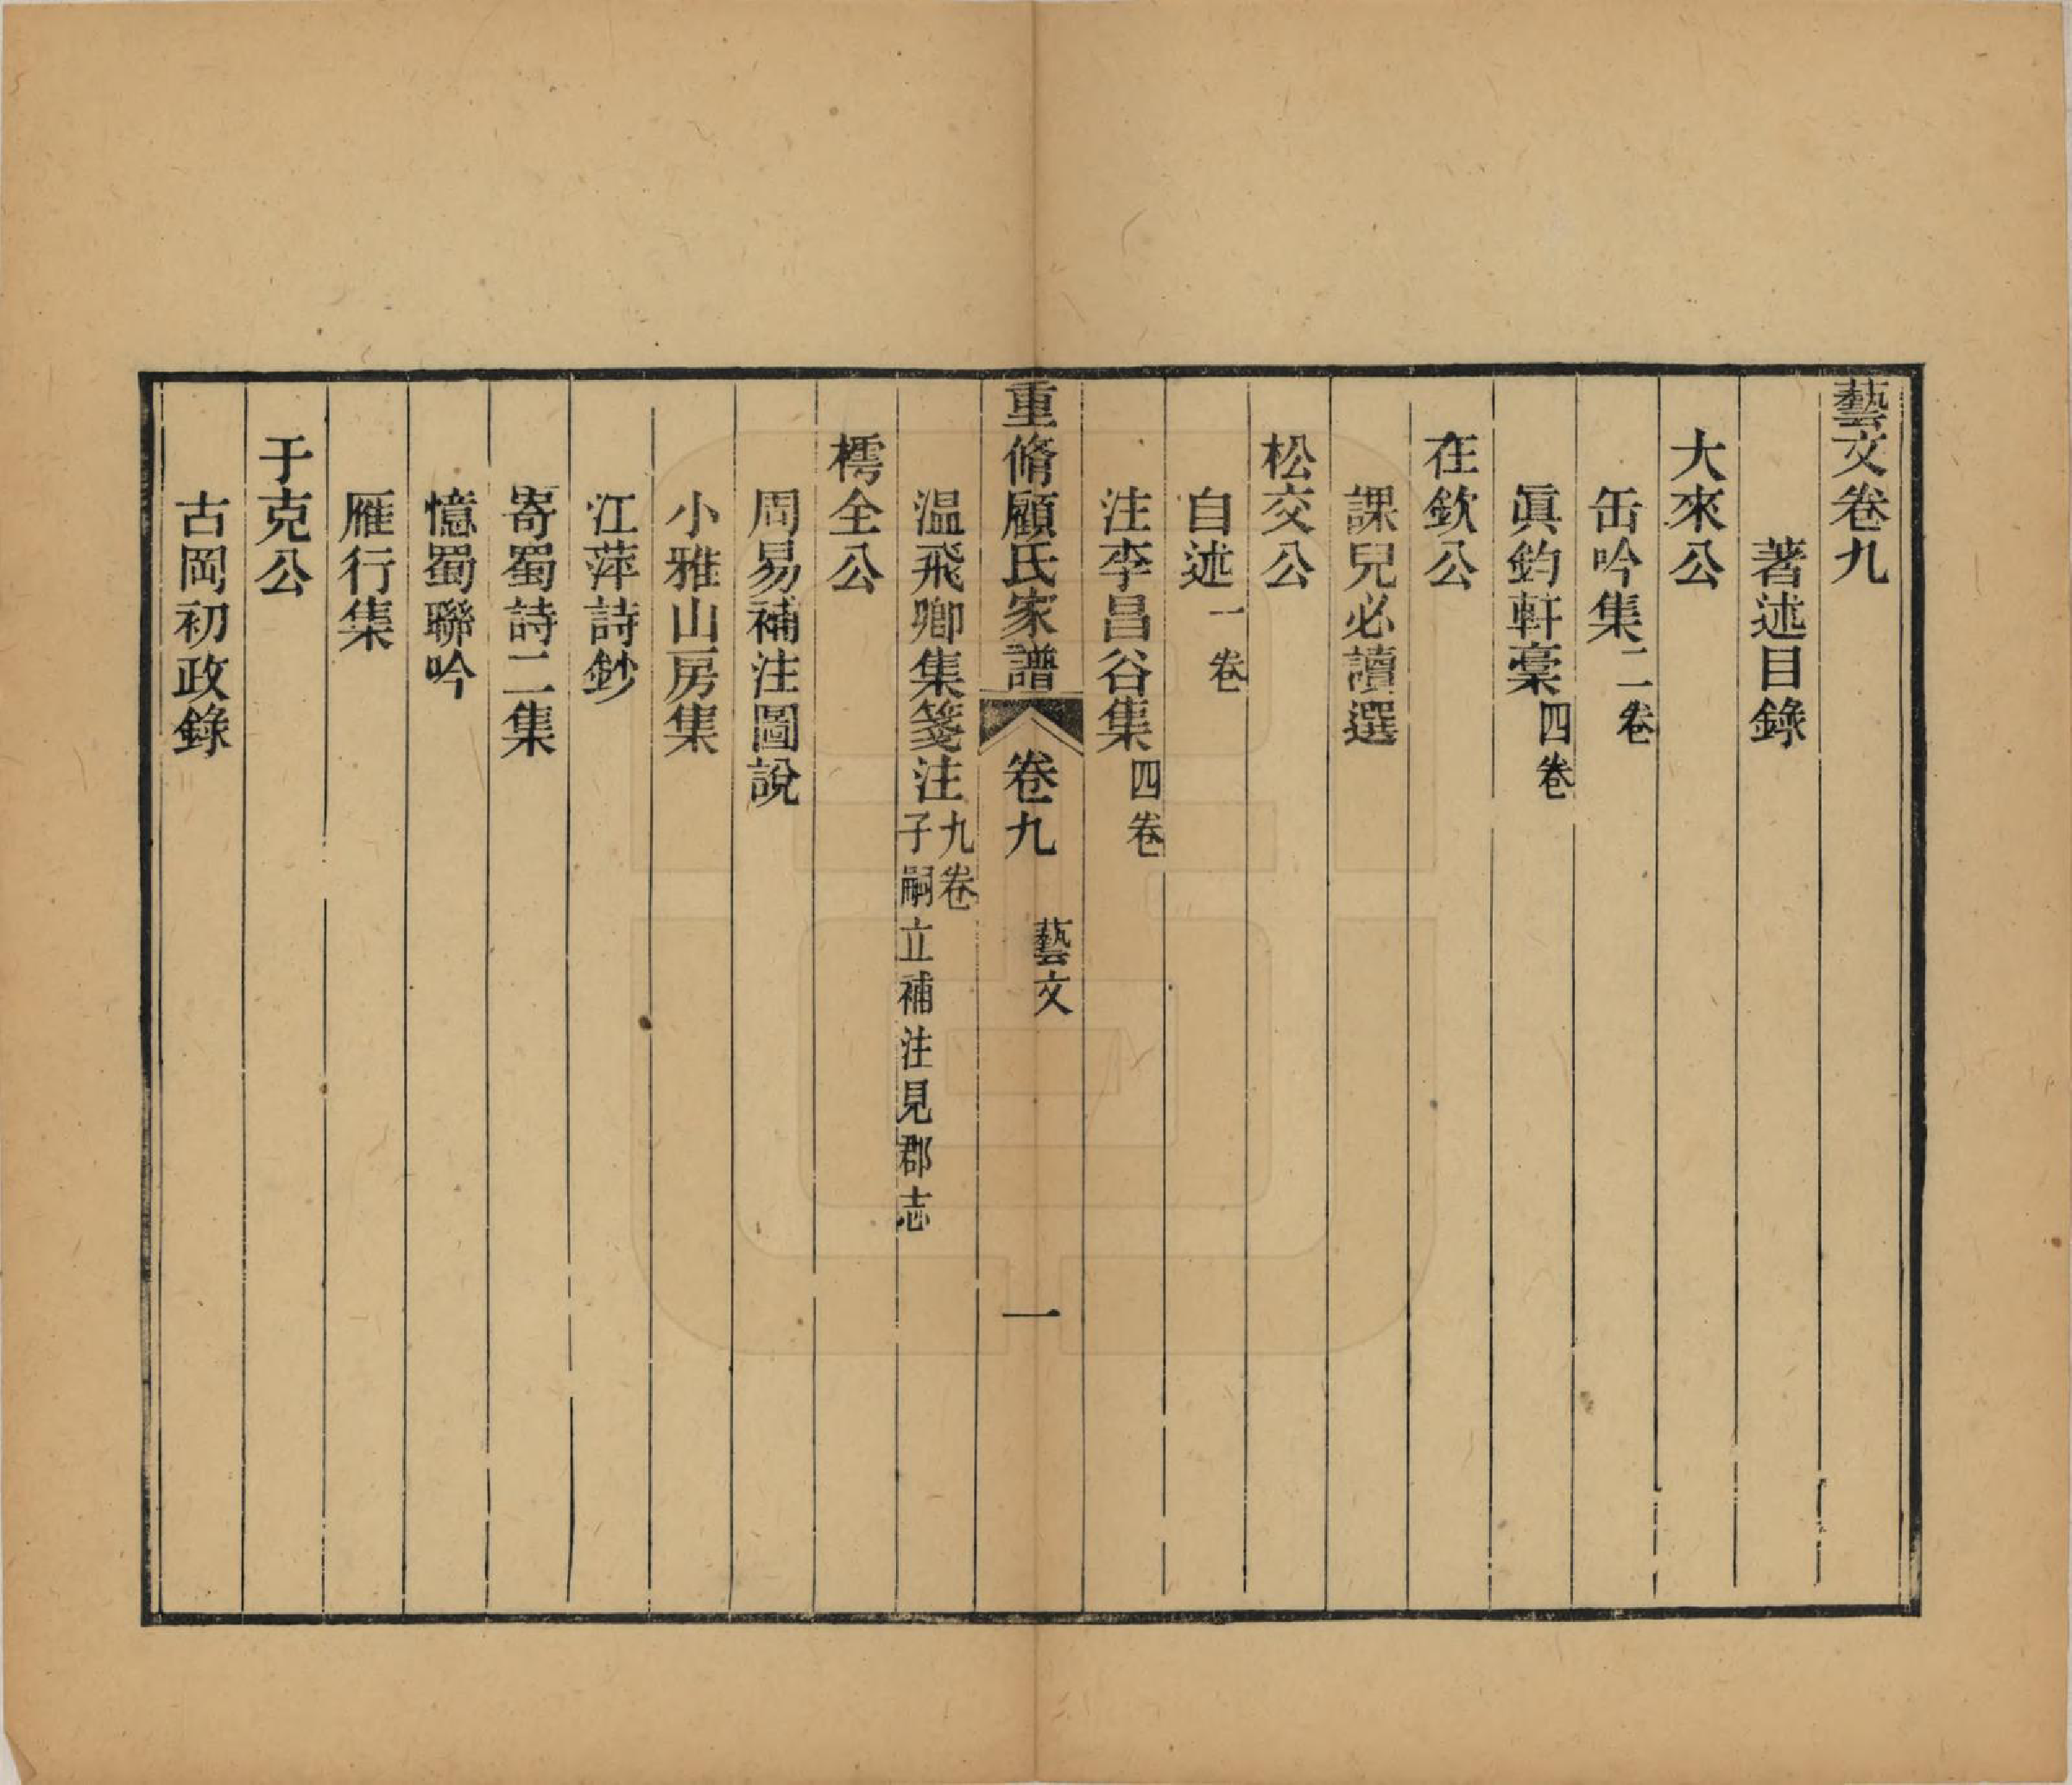 藝文卷九
著述目錄
大來公
缶吟集二卷
眞鈞軒稾四卷
在欽公
課兒必讀選
松交公
自述一卷
注李昌谷集四卷
重脩顧氏家譜 卷九 藝文 一
温飛卿集箋注九卷子嗣立補注見郡志
樗全公
周易補注圖說
小雅山房集
江萍詩鈔
寄蜀詩二集
憶蜀聯吟
雁行集
于克公
古岡初政錄